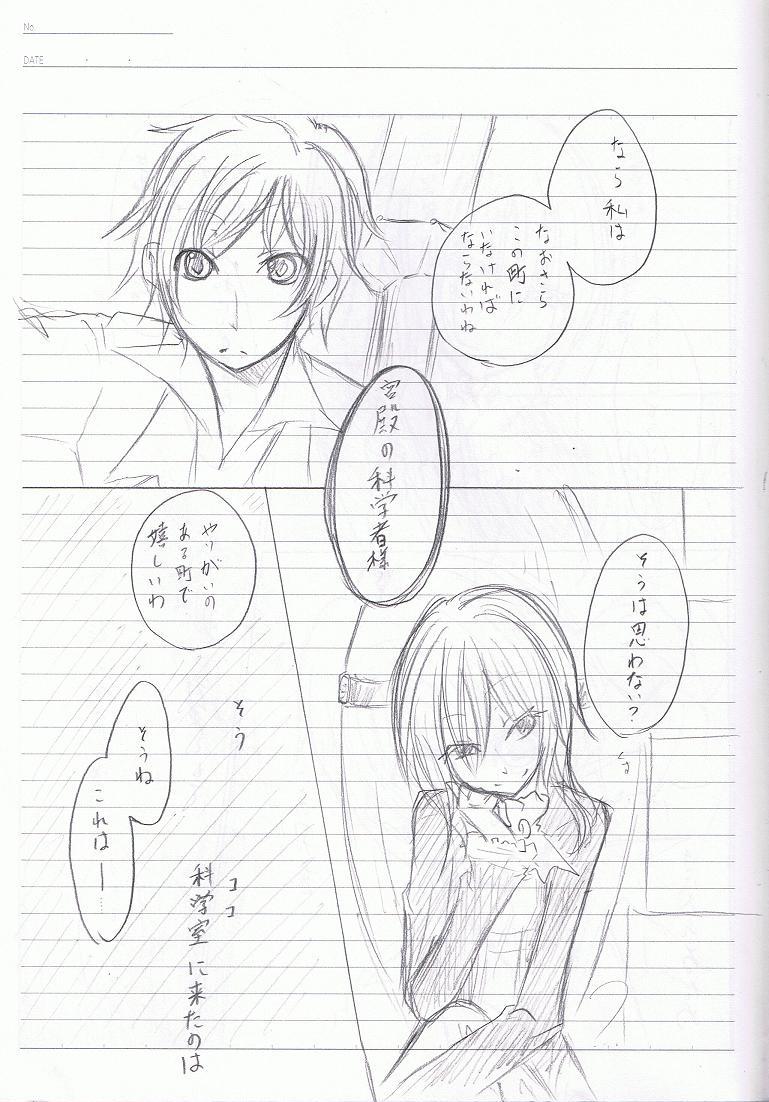 No.
DATE
なら私は
なおさら
この町に
いなければ
ならないわね
そうは思わない?
宮殿の科学者様
やりがいの
ある町で
嬉しいわ
そう
そうね
これは―……
ココ
科学室に来たのは